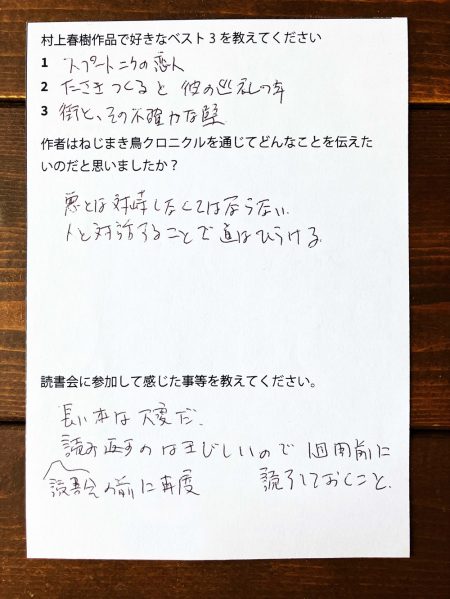 村上春樹作品で好きなベスト3を教えてください
1 スプートニクの恋人
2 たさきつくると 彼の巡礼の年
3 街と、その不確かな壁
作者はねじまき鳥クロニクルを通じてどんなことを伝えた
いのだと思いましたか？
悪とは対峙しなくてはならない.
人と対話することで道はひらける.
読書会に参加して感じた事等を教えてください。
長い本は大変だ.
読み返すのはきびしいので 1週間前に
読書会の前に再度 読了しておくこと.